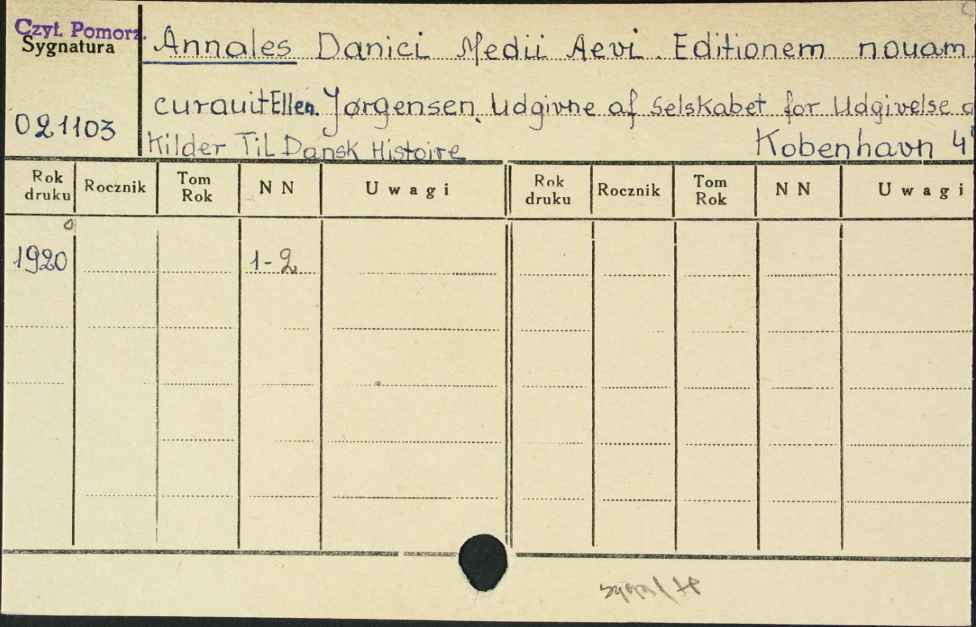 Czyt. Pomorz.
Sygnatura
Annales Danici Medii Aevi. Editionem nouam
curauit Ellen Jørgensen. Udgivne af Selskabet for Udgivelse
021103
Kilder Til Dansk Histoire
Kobenhavn 4
Rok druku Rocznik Tom Rok NN Uwagi Rok druku Rocznik Tom Rok NN Uwagi
1920 1-2